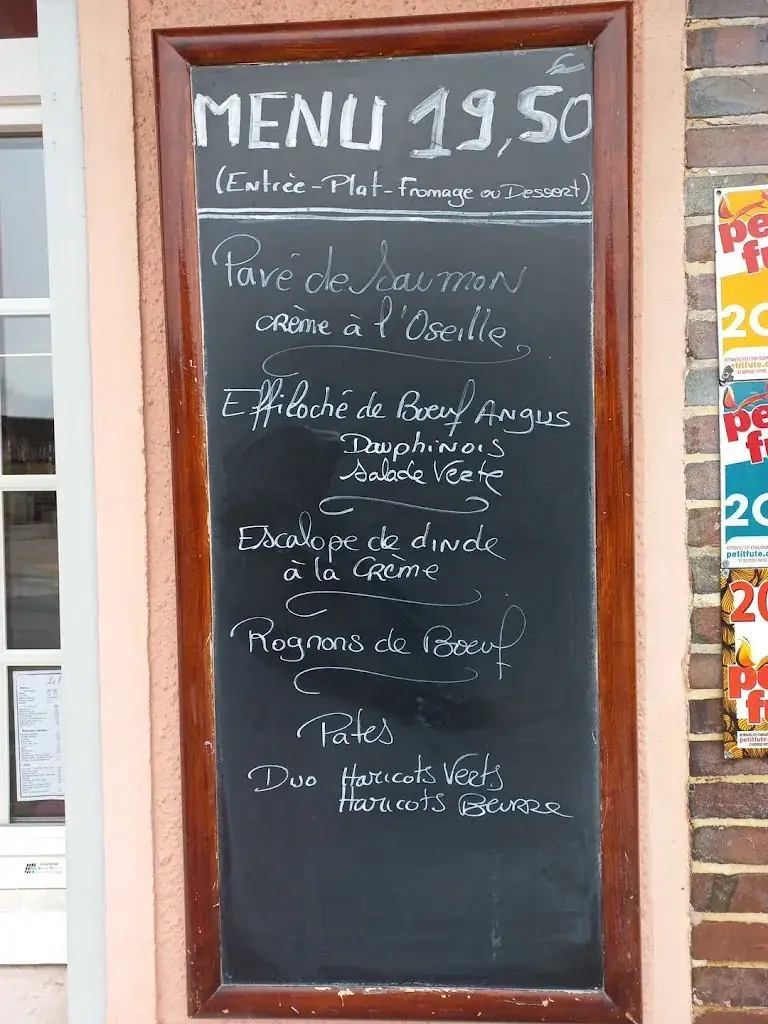 MENU 19,50
(Entrée - Plat - Fromage ou Dessert)
Pavé de Saumon
crème à l'Oseille
Effiloché de Boeuf Angus
Dauphinois
Salade Verte
Escalope de dinde
à la Crème
Rognons de Boeuf
Pates
Duo Haricots Verts
Haricots Beurre
pe
fu
20
petitfute.c
pe
fu
20
petitfute.c
20
pe
fu
petitfute